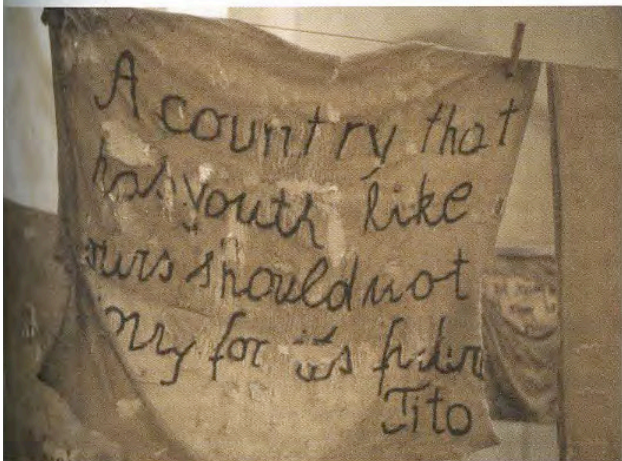 A country that
has youth like
ours should not
worry for its future
Tito